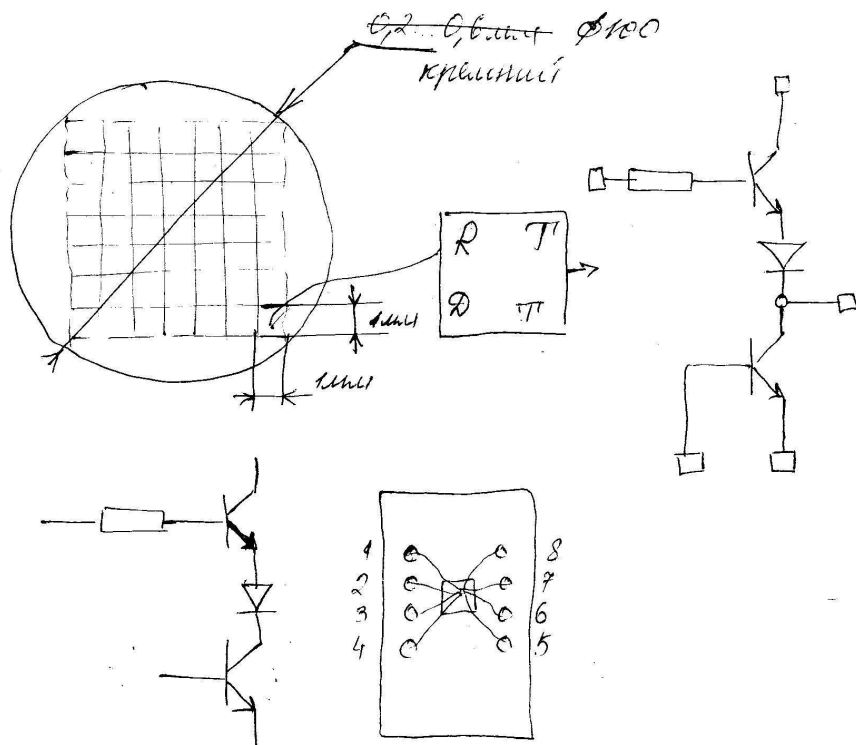 0,2...0,6мм ϕ100
кремний
R T
D T
1мм
1мм
1 8
2 7
3 6
4 5